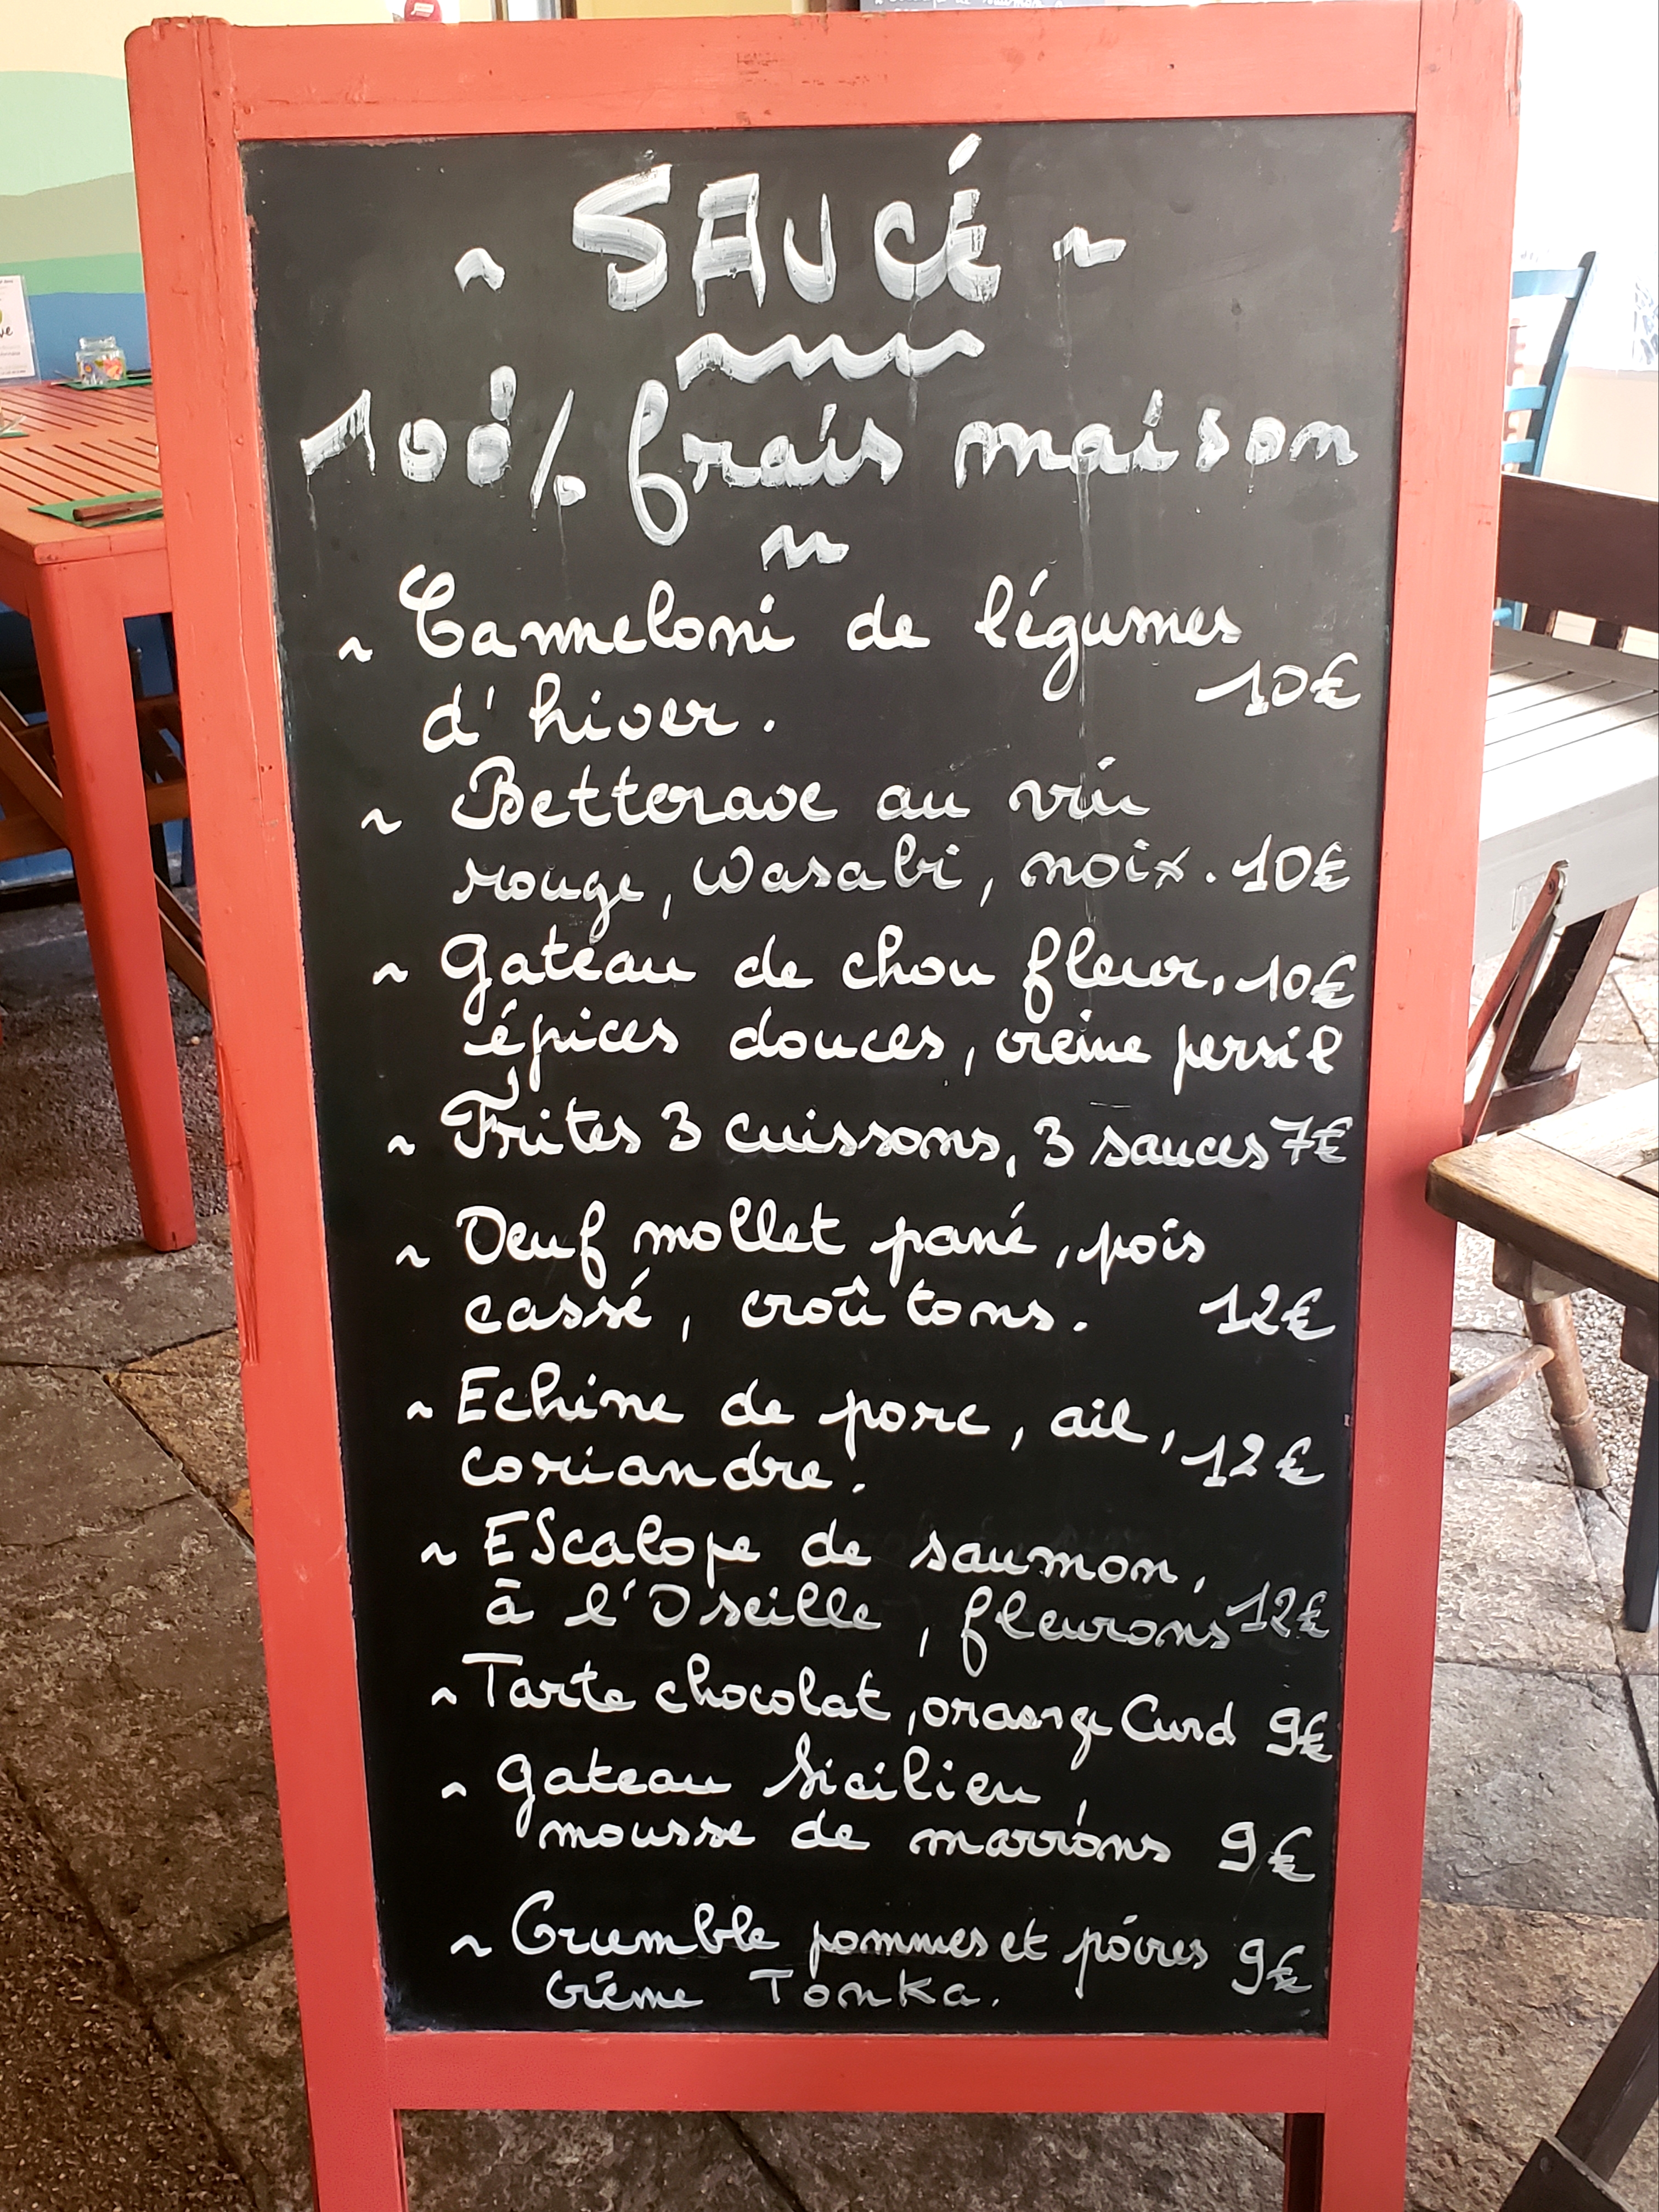 ~ SAUCÉ ~
100% frais maison
~ Canneloni de légumes
d'hiver. 10€
~ Betterave au vin
rouge, Wasabi, noix. 10€
~ Gateau de chou fleur, 10€
épices douces, crème persil
~ Frites 3 cuissons, 3 sauces 7€
~ Oeuf mollet pané, pois
cassé, croûtons. 12€
~ Echine de porc, ail,
coriandre. 12€
~ EScalope de saumon,
à l'Oseille, fleurons 12€
~ Tarte chocolat, orange Curd 9€
~ Gateau Sicilien,
mousse de marrons 9€
~ Crumble pommes et poires 9€
Crème Tonka.